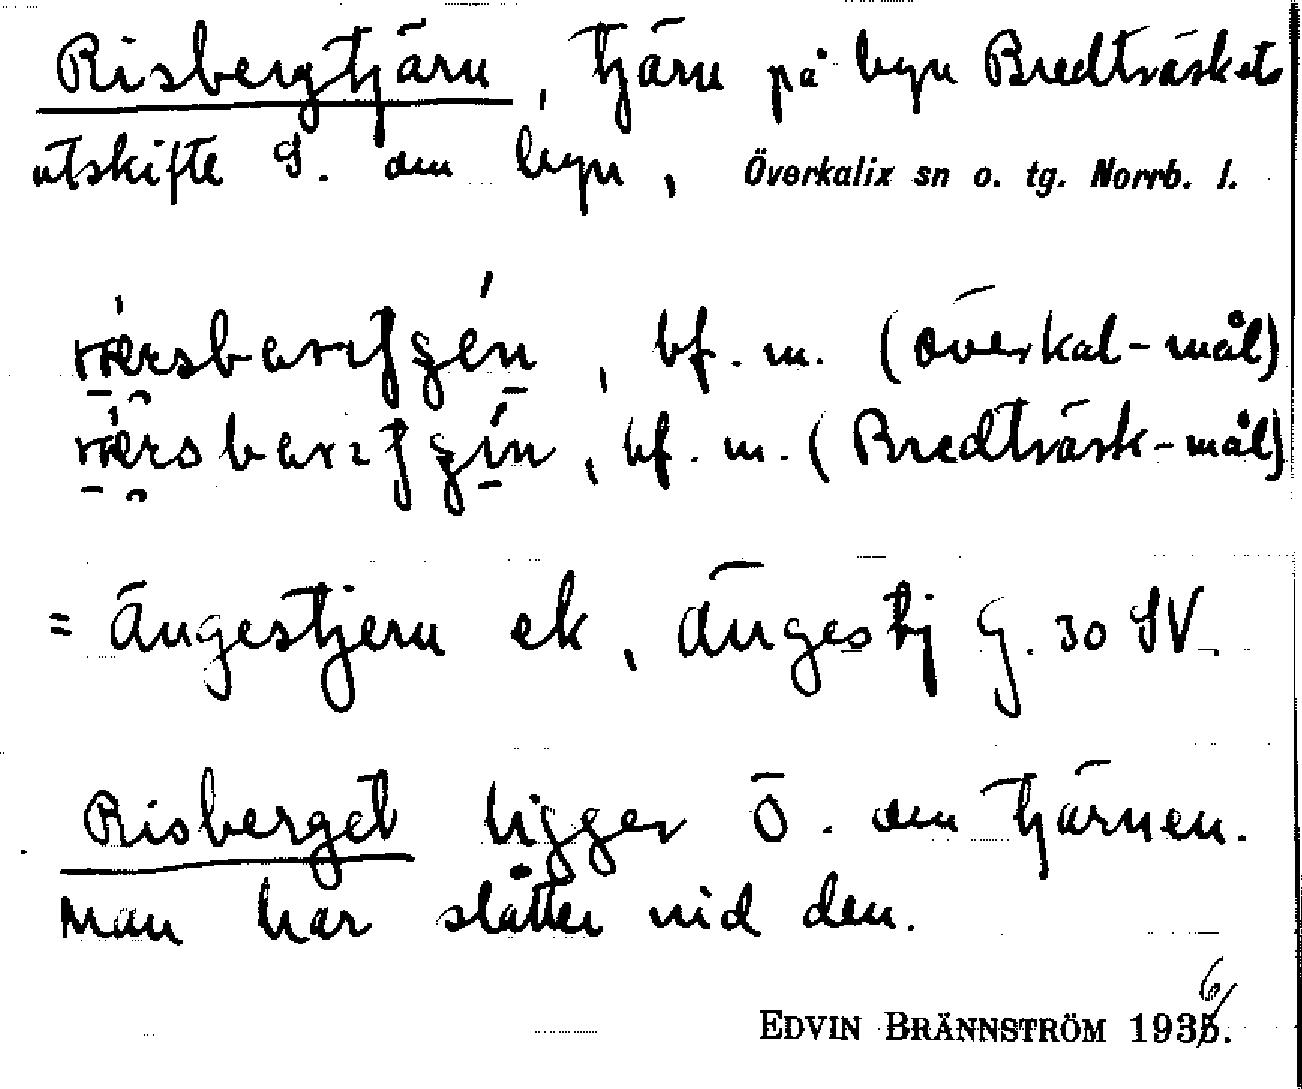 Risbergtjärn, tjärn på byn Bredträskets
utskifte S. om byn, Överkalix sn o. tg. Norrb. l.
, bf. m. (överkal-mål)
, bf. m. (Bredträsk-mål)
= ängestjern ek, ängestj G. 30 SV.
Risberget ligger Ö. om tjärnen.
Man har slåtter vid den.
EDVIN BRÄNNSTRÖM 1936.